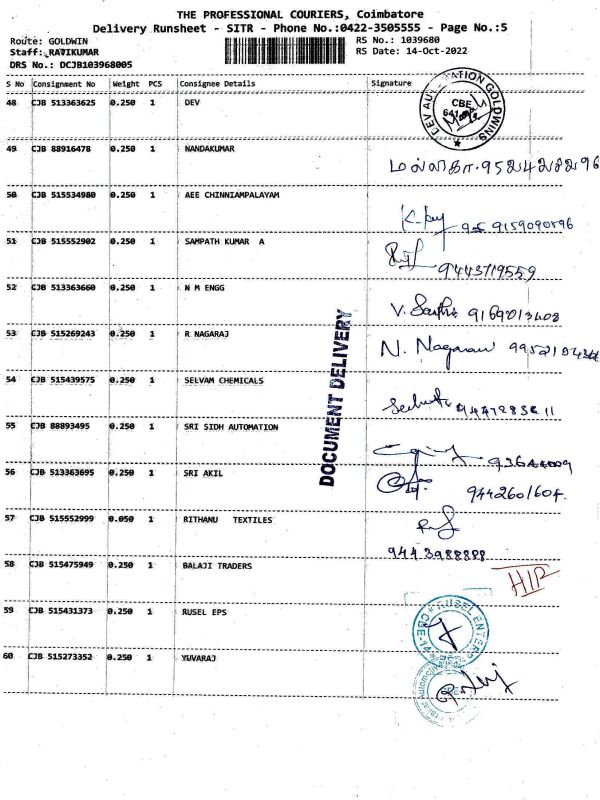 THE PROFESSIONAL COURIERS, Coimbatore
Delivery Runsheet - SITR - Phone No.:0422-3505555 - Page No.:5
Route: GOLDWIN
RS No.: 1039680
Staff: RAVIKUMAR
RS Date: 14-Oct-2022
DRS No.: DCJB103968005
S No Consignment No Weight PCS Consignee Details Signature
48 CJB 513363625 0.250 1 DEV
DEV AUTOMATION GOLDWINS CBE
49 CJB 88916478 0.250 1 NANDAKUMAR
50 CJB 515534980 0.250 1 AEE CHINNIAMPALAYAM
9159090596
51 CJB 515552902 0.250 1 SAMPATH KUMAR A
9443719559
52 CJB 513363660 0.250 1 N M ENGG
53 CJB 515269243 0.250 1 R NAGARAJ
54 CJB 515439575 0.250 1 SELVAM CHEMICALS
55 CJB 88893495 0.250 1 SRI SIDH AUTOMATION
56 CJB 513363695 0.250 1 SRI AKIL
9442601604.
57 CJB 515552999 0.050 1 RITHANU TEXTILES
9443988888
58 CJB 515475949 0.250 1 BALAJI TRADERS
59 CJB 515431373 0.250 1 RUSEL EPS
RUSEL ENTER CBE-14
60 CJB 515273352 0.250 1 YUVARAJ
DOCUMENT DELIVERY